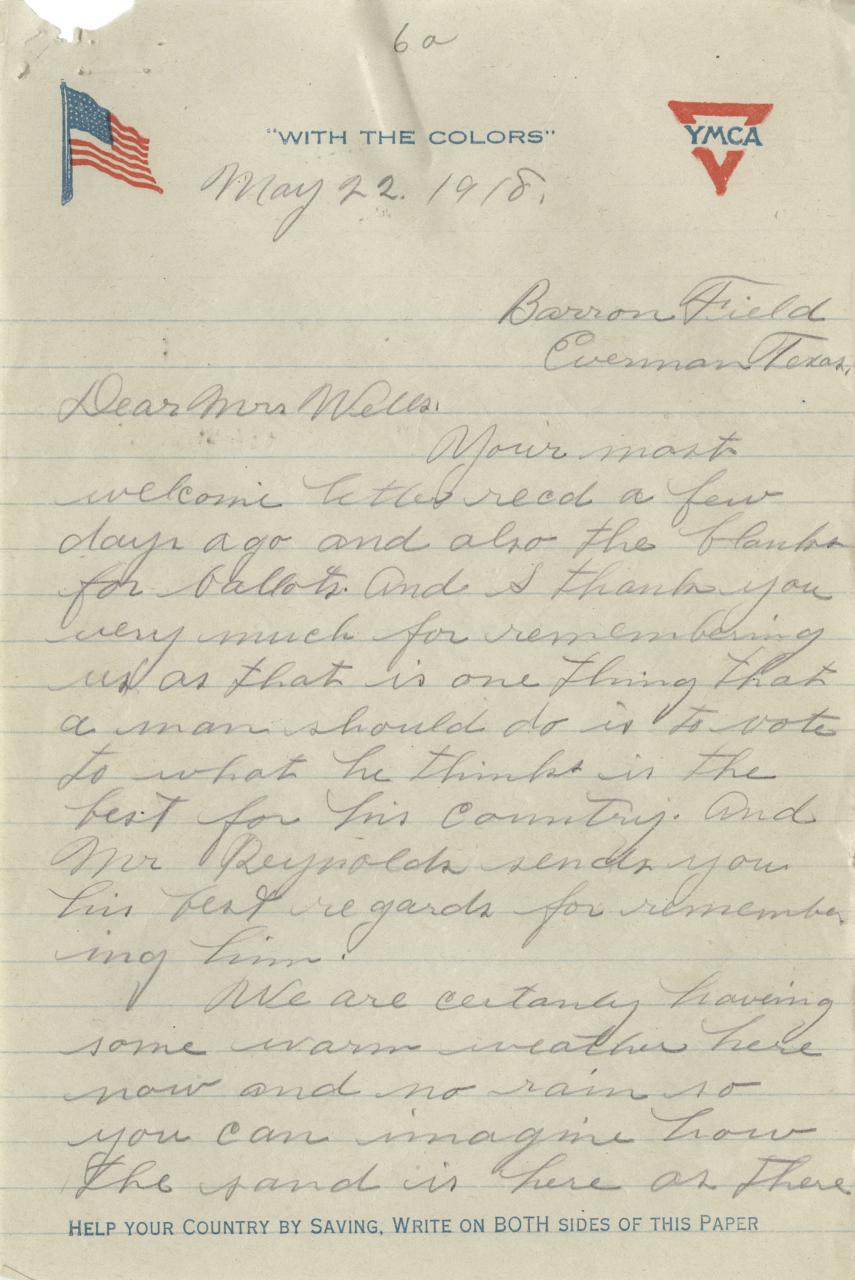 6a
"WITH THE COLORS"
YMCA
May 22. 1918.
Barron Field
Everman Texas.
Dear Mrs Wells.
Your most
welcome letter recd a few
days ago and also the blanks
for ballots. And I thank you
very much for remembering
us as that is one thing that
a man should do is to vote
to what he thinks is the
best for his country. And
Mr Reynolds sends you
his best regards for remember
ing him.
We are certanly haveing
some warm weather here
now and no rain so
you can imagine how
the sand is here as there
HELP YOUR COUNTRY BY SAVING, WRITE ON BOTH SIDES OF THIS PAPER